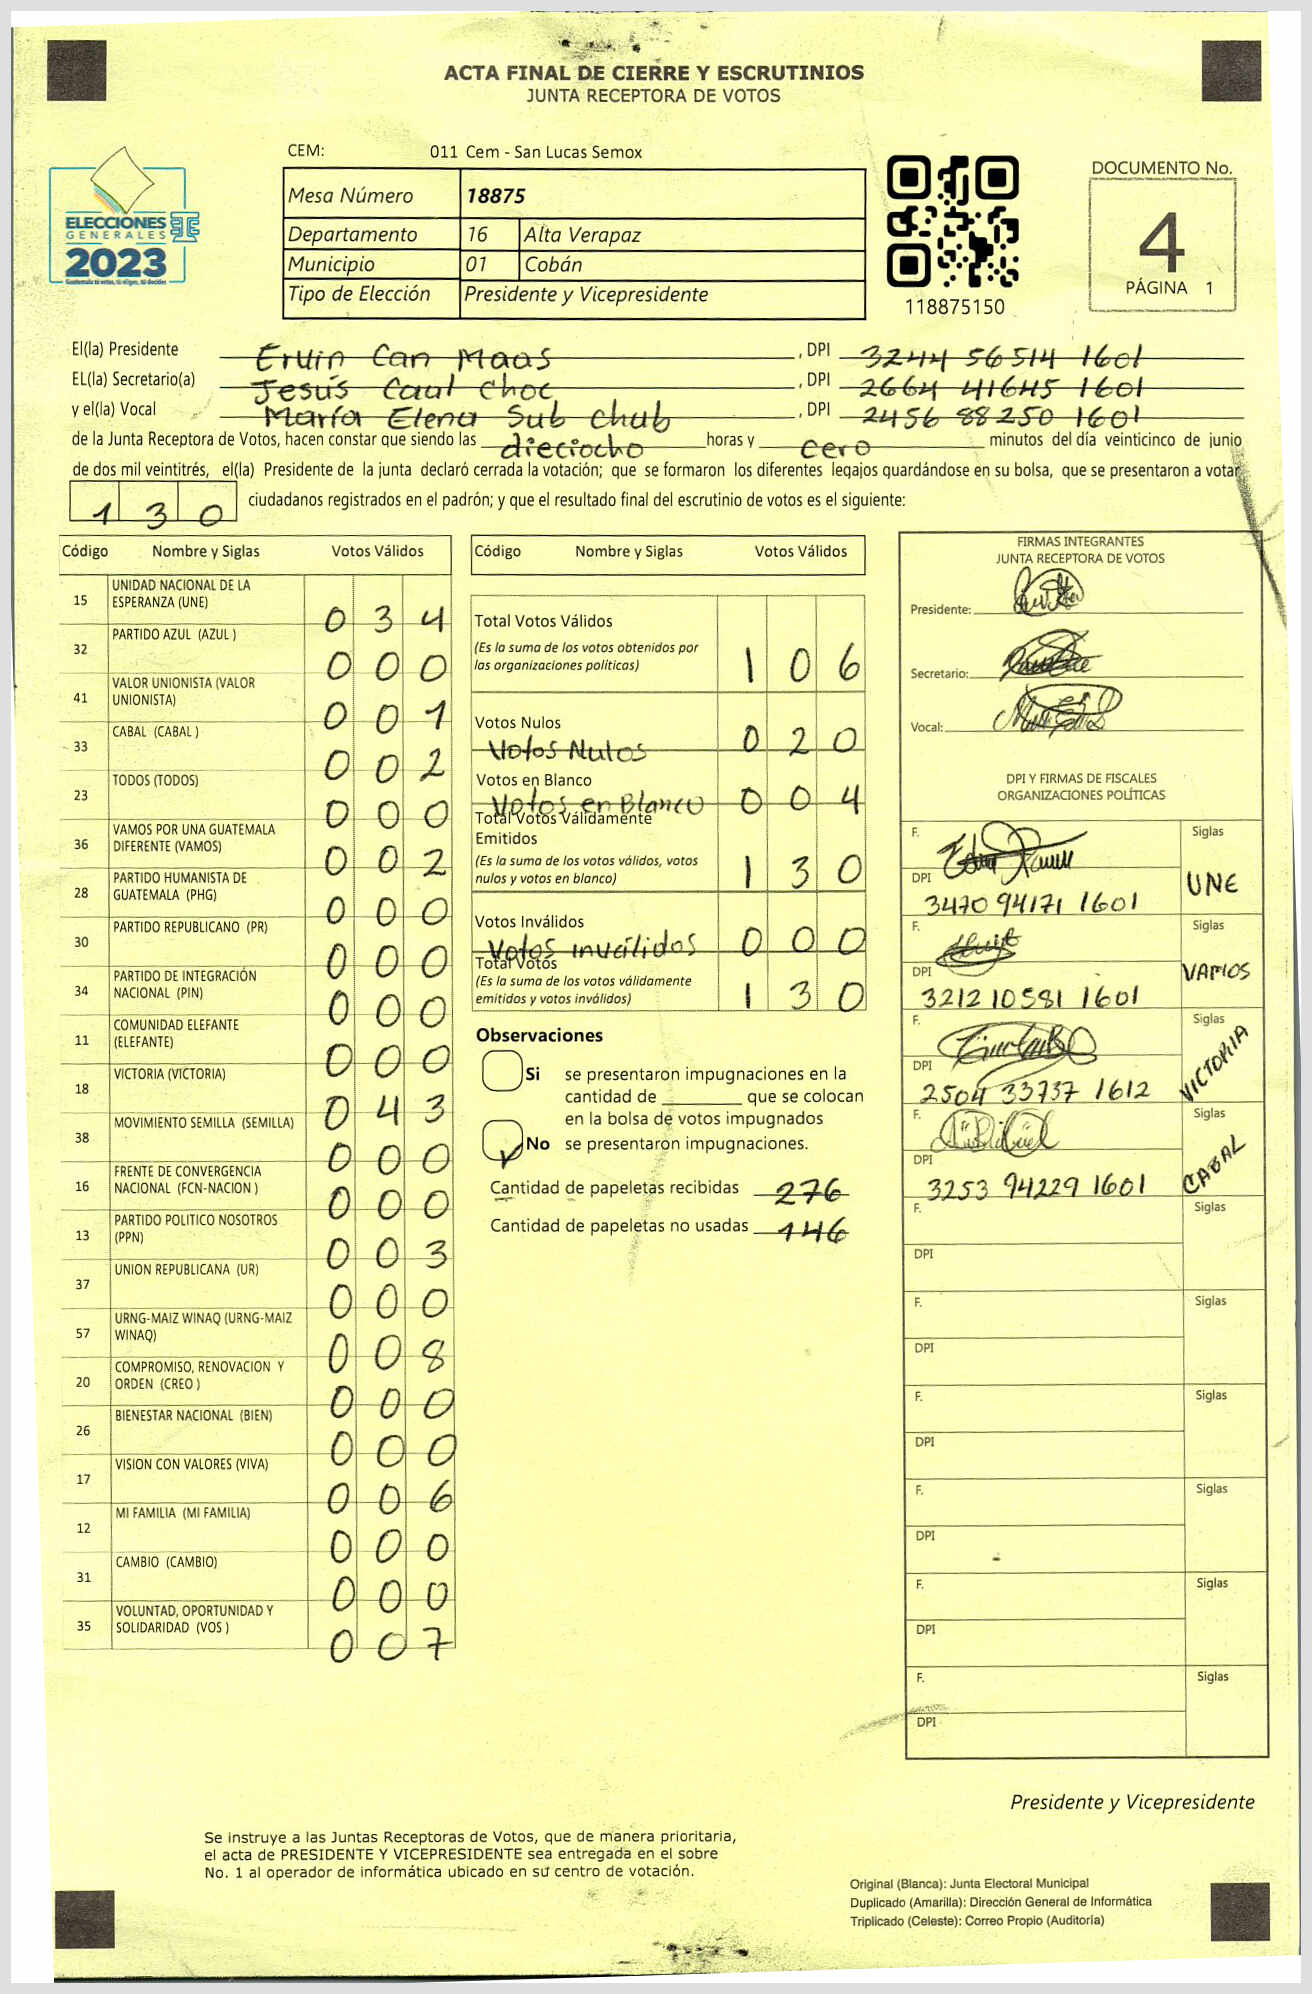 ACTA FINAL DE CIERRE Y ESCRUTINIOS
JUNTA RECEPTORA DE VOTOS
ELECCIONES
GENERALES
2023
CEM: 011 Cem - San Lucas Semox
Mesa Número 18875
Departamento 16 Alta Verapaz
Municipio 01 Cobán
Tipo de Elección Presidente y Vicepresidente
118875150
DOCUMENTO No.
4
PÁGINA 1
El(la) Presidente Ervin Can Maas, DPI 3244 56514 1601
EL(la) Secretario(a) Jesús Caal Choc, DPI 2664 41645 1601
y el(la) Vocal María Elena Sub Chub, DPI 2456 88250 1601
de la Junta Receptora de Votos, hacen constar que siendo las dieciocho horas y cero minutos del día veinticinco de junio
de dos mil veintitrés, el(la) Presidente de la junta declaró cerrada la votación; que se formaron los diferentes legajos guardándose en su bolsa, que se presentaron a votar
130 ciudadanos registrados en el padrón; y que el resultado final del escrutinio de votos es el siguiente:
Código Nombre y Siglas Votos Válidos
15 UNIDAD NACIONAL DE LA ESPERANZA (UNE) 034
32 PARTIDO AZUL (AZUL ) 000
41 VALOR UNIONISTA (VALOR UNIONISTA) 001
33 CABAL (CABAL ) 002
23 TODOS (TODOS) 000
36 VAMOS POR UNA GUATEMALA DIFERENTE (VAMOS) 002
28 PARTIDO HUMANISTA DE GUATEMALA (PHG) 000
30 PARTIDO REPUBLICANO (PR) 000
34 PARTIDO DE INTEGRACIÓN NACIONAL (PIN) 000
11 COMUNIDAD ELEFANTE (ELEFANTE) 000
18 VICTORIA (VICTORIA) 043
38 MOVIMIENTO SEMILLA (SEMILLA) 000
16 FRENTE DE CONVERGENCIA NACIONAL (FCN-NACION ) 000
13 PARTIDO POLITICO NOSOTROS (PPN) 003
37 UNION REPUBLICANA (UR) 000
57 URNG-MAIZ WINAQ (URNG-MAIZ WINAQ) 008
20 COMPROMISO, RENOVACION Y ORDEN (CREO ) 000
26 BIENESTAR NACIONAL (BIEN) 000
17 VISION CON VALORES (VIVA) 006
12 MI FAMILIA (MI FAMILIA) 000
31 CAMBIO (CAMBIO) 000
35 VOLUNTAD, OPORTUNIDAD Y SOLIDARIDAD (VOS ) 007
Código Nombre y Siglas Votos Válidos
Total Votos Válidos 106
(Es la suma de los votos obtenidos por
las organizaciones políticas)
Votos Nulos 020
Votos Nulos
Votos en Blanco 004
Votos en Blanco
Total Votos Válidamente
Emitidos 130
(Es la suma de los votos válidos, votos
nulos y votos en blanco)
Votos Inválidos 000
Votos inválidos
Total Votos 130
(Es la suma de los votos válidamente
emitidos y votos inválidos)
Observaciones
Si se presentaron impugnaciones en la
cantidad de ________ que se colocan
en la bolsa de votos impugnados
No se presentaron impugnaciones.
Cantidad de papeletas recibidas 276
Cantidad de papeletas no usadas 146
FIRMAS INTEGRANTES
JUNTA RECEPTORA DE VOTOS
Presidente:
Secretario:
Vocal:
DPI Y FIRMAS DE FISCALES
ORGANIZACIONES POLÍTICAS
F. Siglas
DPI 3470 94171 1601 UNE
F. Siglas
DPI 3212 10581 1601 VAMOS
F. Siglas
DPI 2504 33737 1612 VICTORIA
F. Siglas
DPI 3253 94229 1601 CABAL
F. Siglas
DPI
F. Siglas
DPI
F. Siglas
DPI
F. Siglas
DPI
F. Siglas
DPI
F. Siglas
DPI
Presidente y Vicepresidente
Se instruye a las Juntas Receptoras de Votos, que de manera prioritaria,
el acta de PRESIDENTE Y VICEPRESIDENTE sea entregada en el sobre
No. 1 al operador de informática ubicado en su centro de votación.
Original (Blanca): Junta Electoral Municipal
Duplicado (Amarilla): Dirección General de Informática
Triplicado (Celeste): Correo Propio (Auditoría)